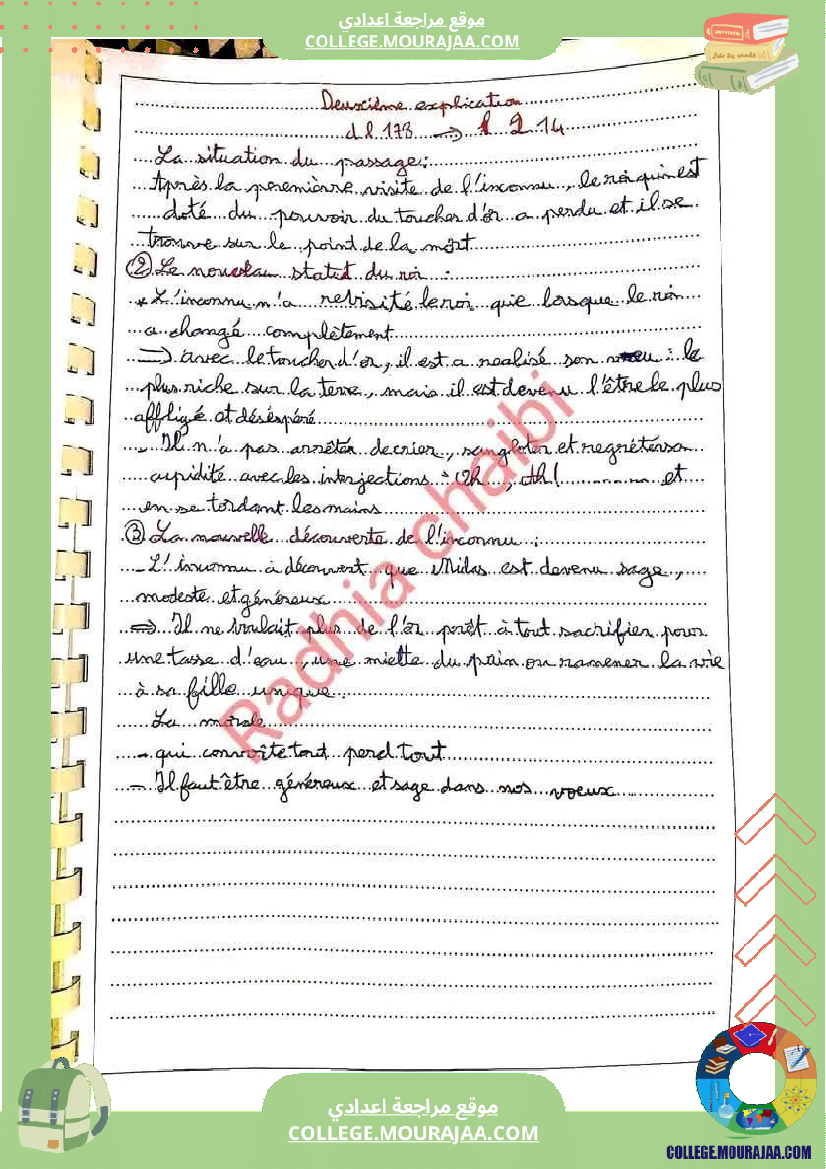 موقع مراجعة اعدادي
COLLEGE.MOURAJAA.COM
Deuxième explication
d l 173 → l 214
La situation du passage:
Après la peremière visite de l'inconnu, le roi qui n est
doté du pouvoir du toucher d'or a perdu et il se
trouve sur le point de la mort
② Le nouveau statut du roi :
* L'inconnu n'a revisité le roi que lorsque le roi
a changé complètement
⇒ avec le toucher d'or, il est a realisé son vœu : le
plus riche sur la terre, mais il est devenu l'être le plus
affligé et désespéré
- Il n'a pas arrêter de crier, sangloter et regréter sa
cupidité avec les interjections : Oh, Ah! ......... et
en se tordant les mains
③ La nouvelle découverte de l'inconnu :
- L'inconnu à découvert que Midas est devenu sage,
modeste et généreux
⇒ Il ne voulait plus de l'or prêt à tout sacrifier pour
une tasse d'eau, une miette du pain ou ramener la vie
à sa fille unique.
La morale
- qui convoîte tout perd tout
- Il faut être généreux et sage dans nos voeux
Radhia chaibi
موقع مراجعة اعدادي
COLLEGE.MOURAJAA.COM
COLLEGE.MOURAJAA.COM